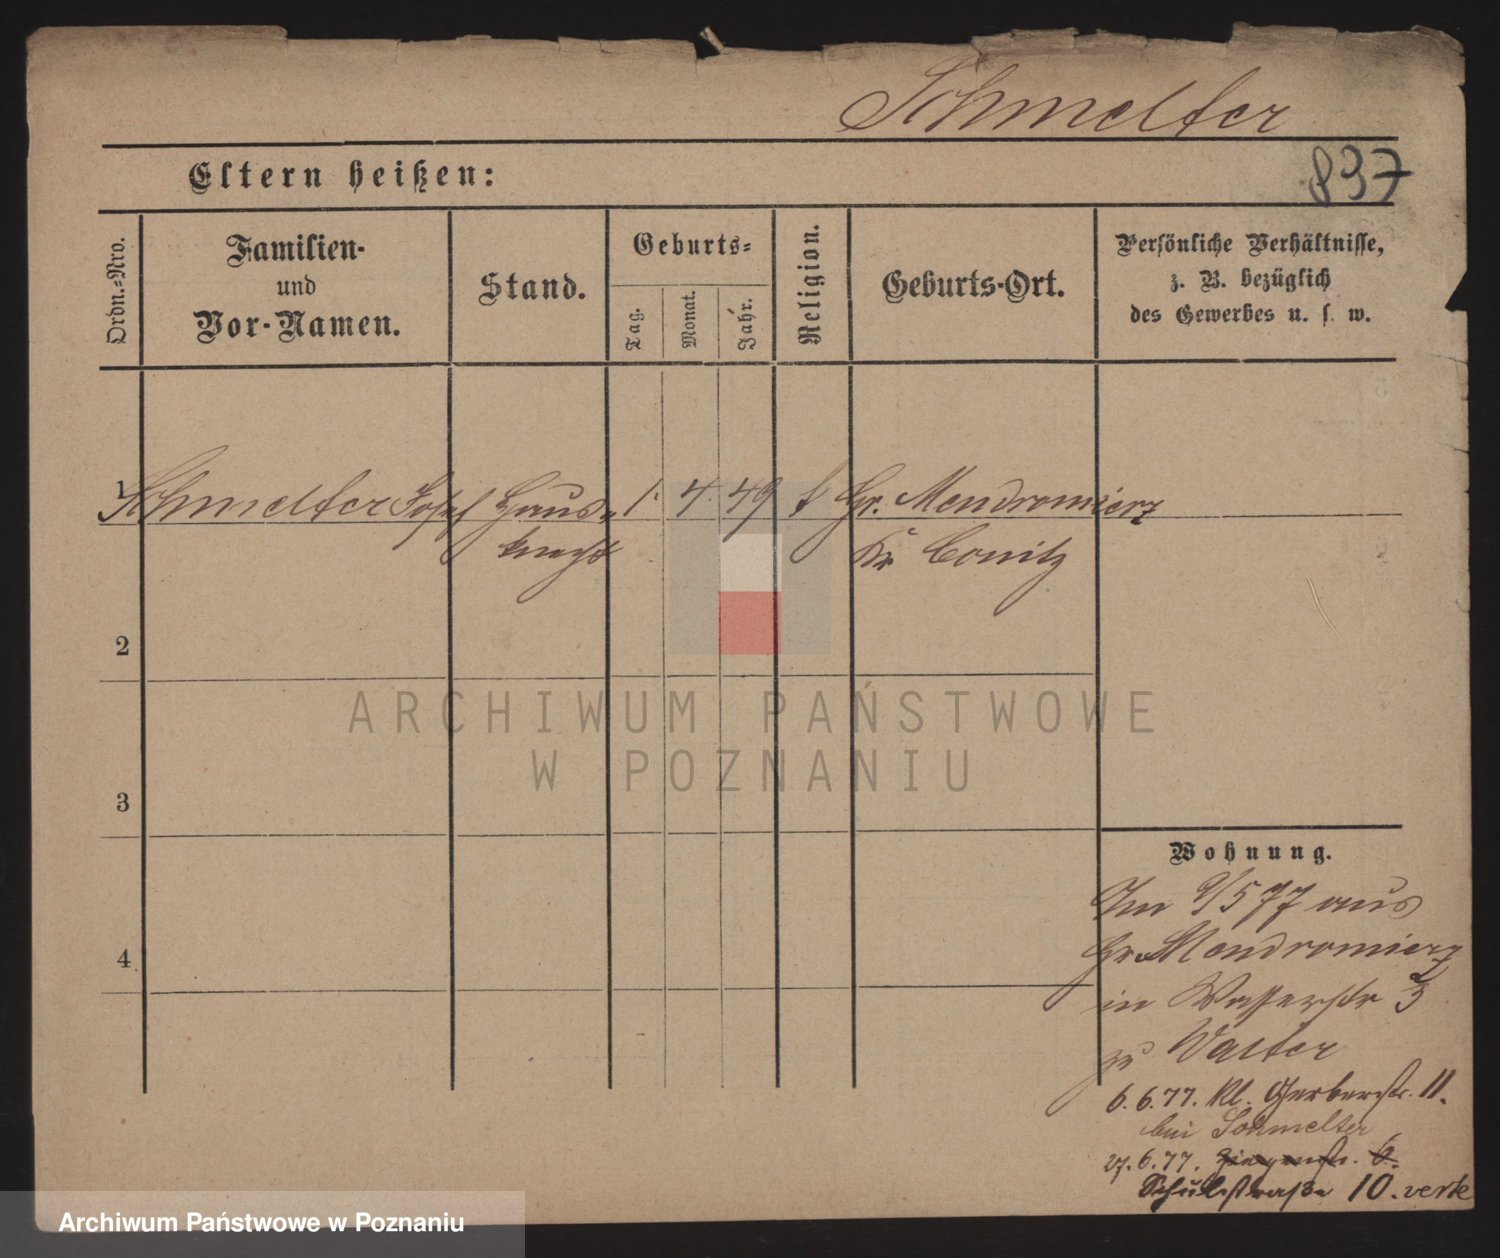 Schmelter
Eltern heißen:
837
Ordn.-Nro.
Familien-
und
Vor-Namen.
Stand.
Geburts-
Tag.
Monat.
Jahr.
Religion.
Geburts-Ort.
Persönliche Verhältnisse,
z. B. bezüglich
des Gewerbes u. s. w.
1
Schmelter Josef Haus- 1. 4. 49 k Gr. Mendromierz
knecht Kr. Conitz
2
3
4
Wohnung.
Im 9/5 77 aus
Gr. Mendromierz
in Wasserstr 3
zu Walter
6.6.77. Kl. Gerberstr. 11.
bei Schmelter
27.6.77. Ziegenstr. 6.
Schulstraße 10. verte
ARCHIWUM PAŃSTWOWE
W POZNANIU
Archiwum Państwowe w Poznaniu